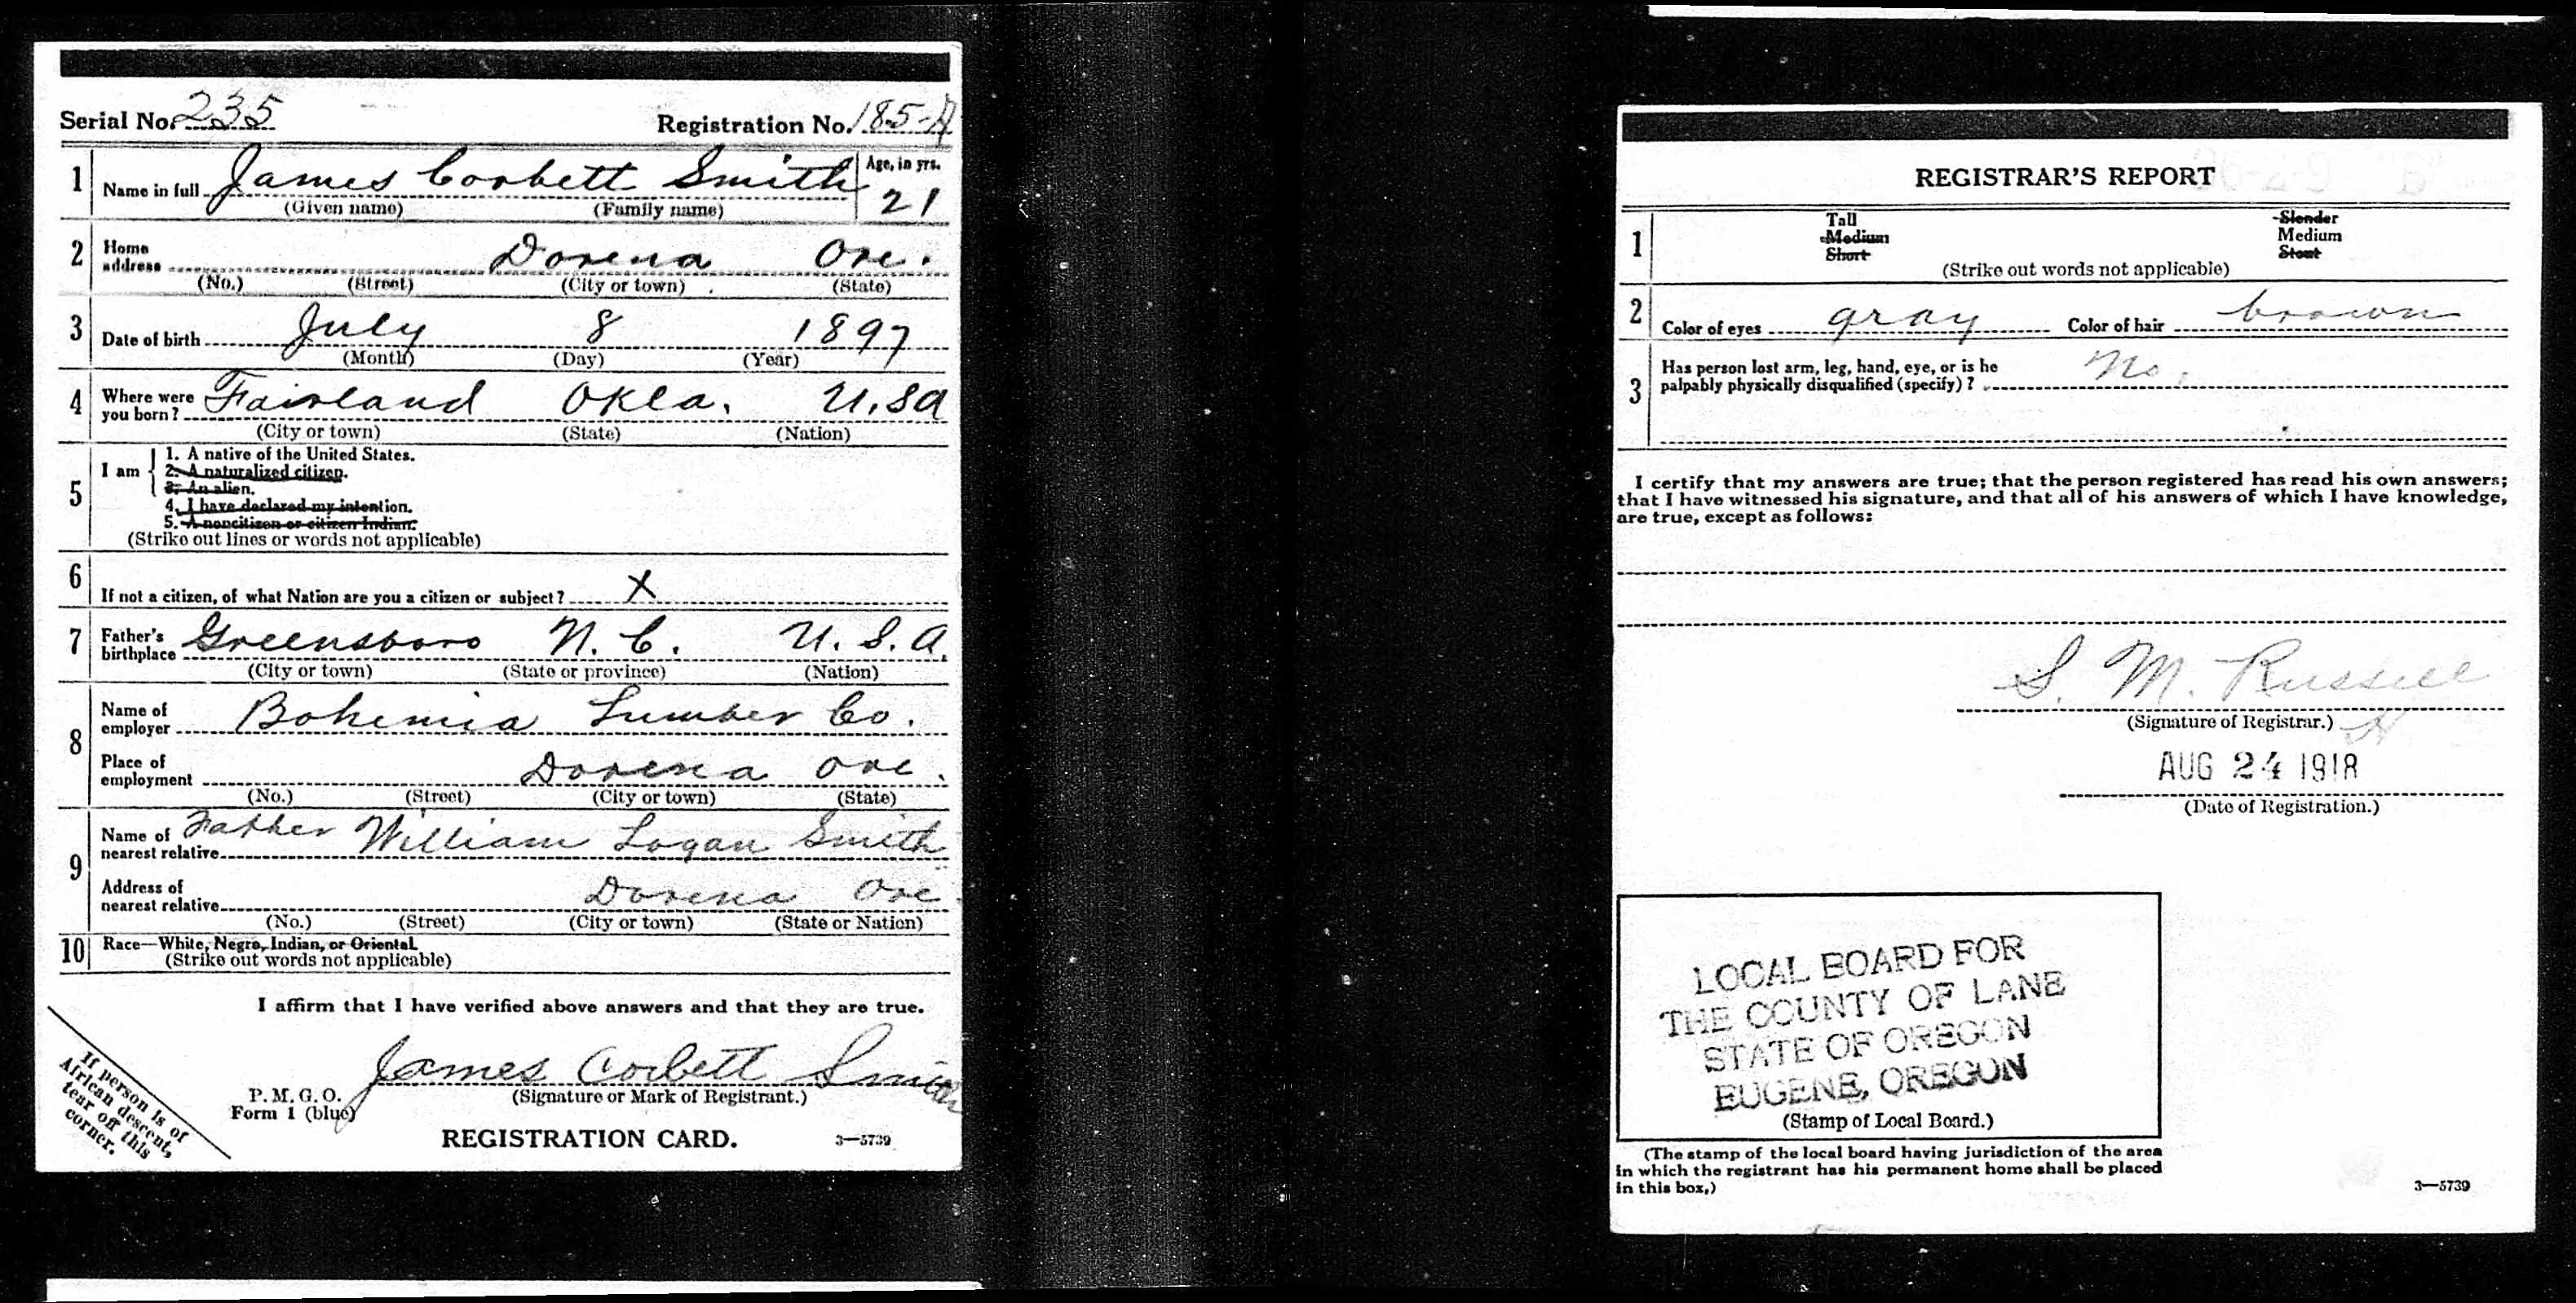 Serial No. 235 Registration No. 185-A
1 Name in full James Corbett Smith Age, in yrs. 21
(Given name) (Family name)
2 Home address Dorena Ore.
(No.) (Street) (City or town) (State)
3 Date of birth July 8 1897
(Month) (Day) (Year)
4 Where were you born? Fairland Okla. U.S.A
(City or town) (State) (Nation)
5 I am
1. A native of the United States.
2. A naturalized citizen.
3. An alien.
4. I have declared my intention.
5. A noncitizen or citizen Indian.
(Strike out lines or words not applicable)
6 If not a citizen, of what Nation are you a citizen or subject? X
7 Father's birthplace Greensboro N. C. U. S. A.
(City or town) (State or province) (Nation)
8 Name of employer Bohemia Lumber Co.
Place of employment Dorena Ore.
(No.) (Street) (City or town) (State)
9 Name of nearest relative Father William Logan Smith
Address of nearest relative Dorena Ore.
(No.) (Street) (City or town) (State or Nation)
10 Race—White, Negro, Indian, or Oriental.
(Strike out words not applicable)
I affirm that I have verified above answers and that they are true.
James Corbett Smith
(Signature or Mark of Registrant.)
P. M. G. O.
Form 1 (blue)
REGISTRATION CARD. 3—5739
If person is of
African descent,
tear off this
corner.
REGISTRAR'S REPORT
1 Tall Slender
Medium Medium
Short Stout
(Strike out words not applicable)
2 Color of eyes gray Color of hair brown
3 Has person lost arm, leg, hand, eye, or is he
palpably physically disqualified (specify)? No.
I certify that my answers are true; that the person registered has read his own answers;
that I have witnessed his signature, and that all of his answers of which I have knowledge,
are true, except as follows:
S. M. Russell
(Signature of Registrar.)
AUG 24 1918
(Date of Registration.)
LOCAL BOARD FOR
THE COUNTY OF LANE
STATE OF OREGON
EUGENE, OREGON
(Stamp of Local Board.)
(The stamp of the local board having jurisdiction of the area
in which the registrant has his permanent home shall be placed
in this box.)
3—5739